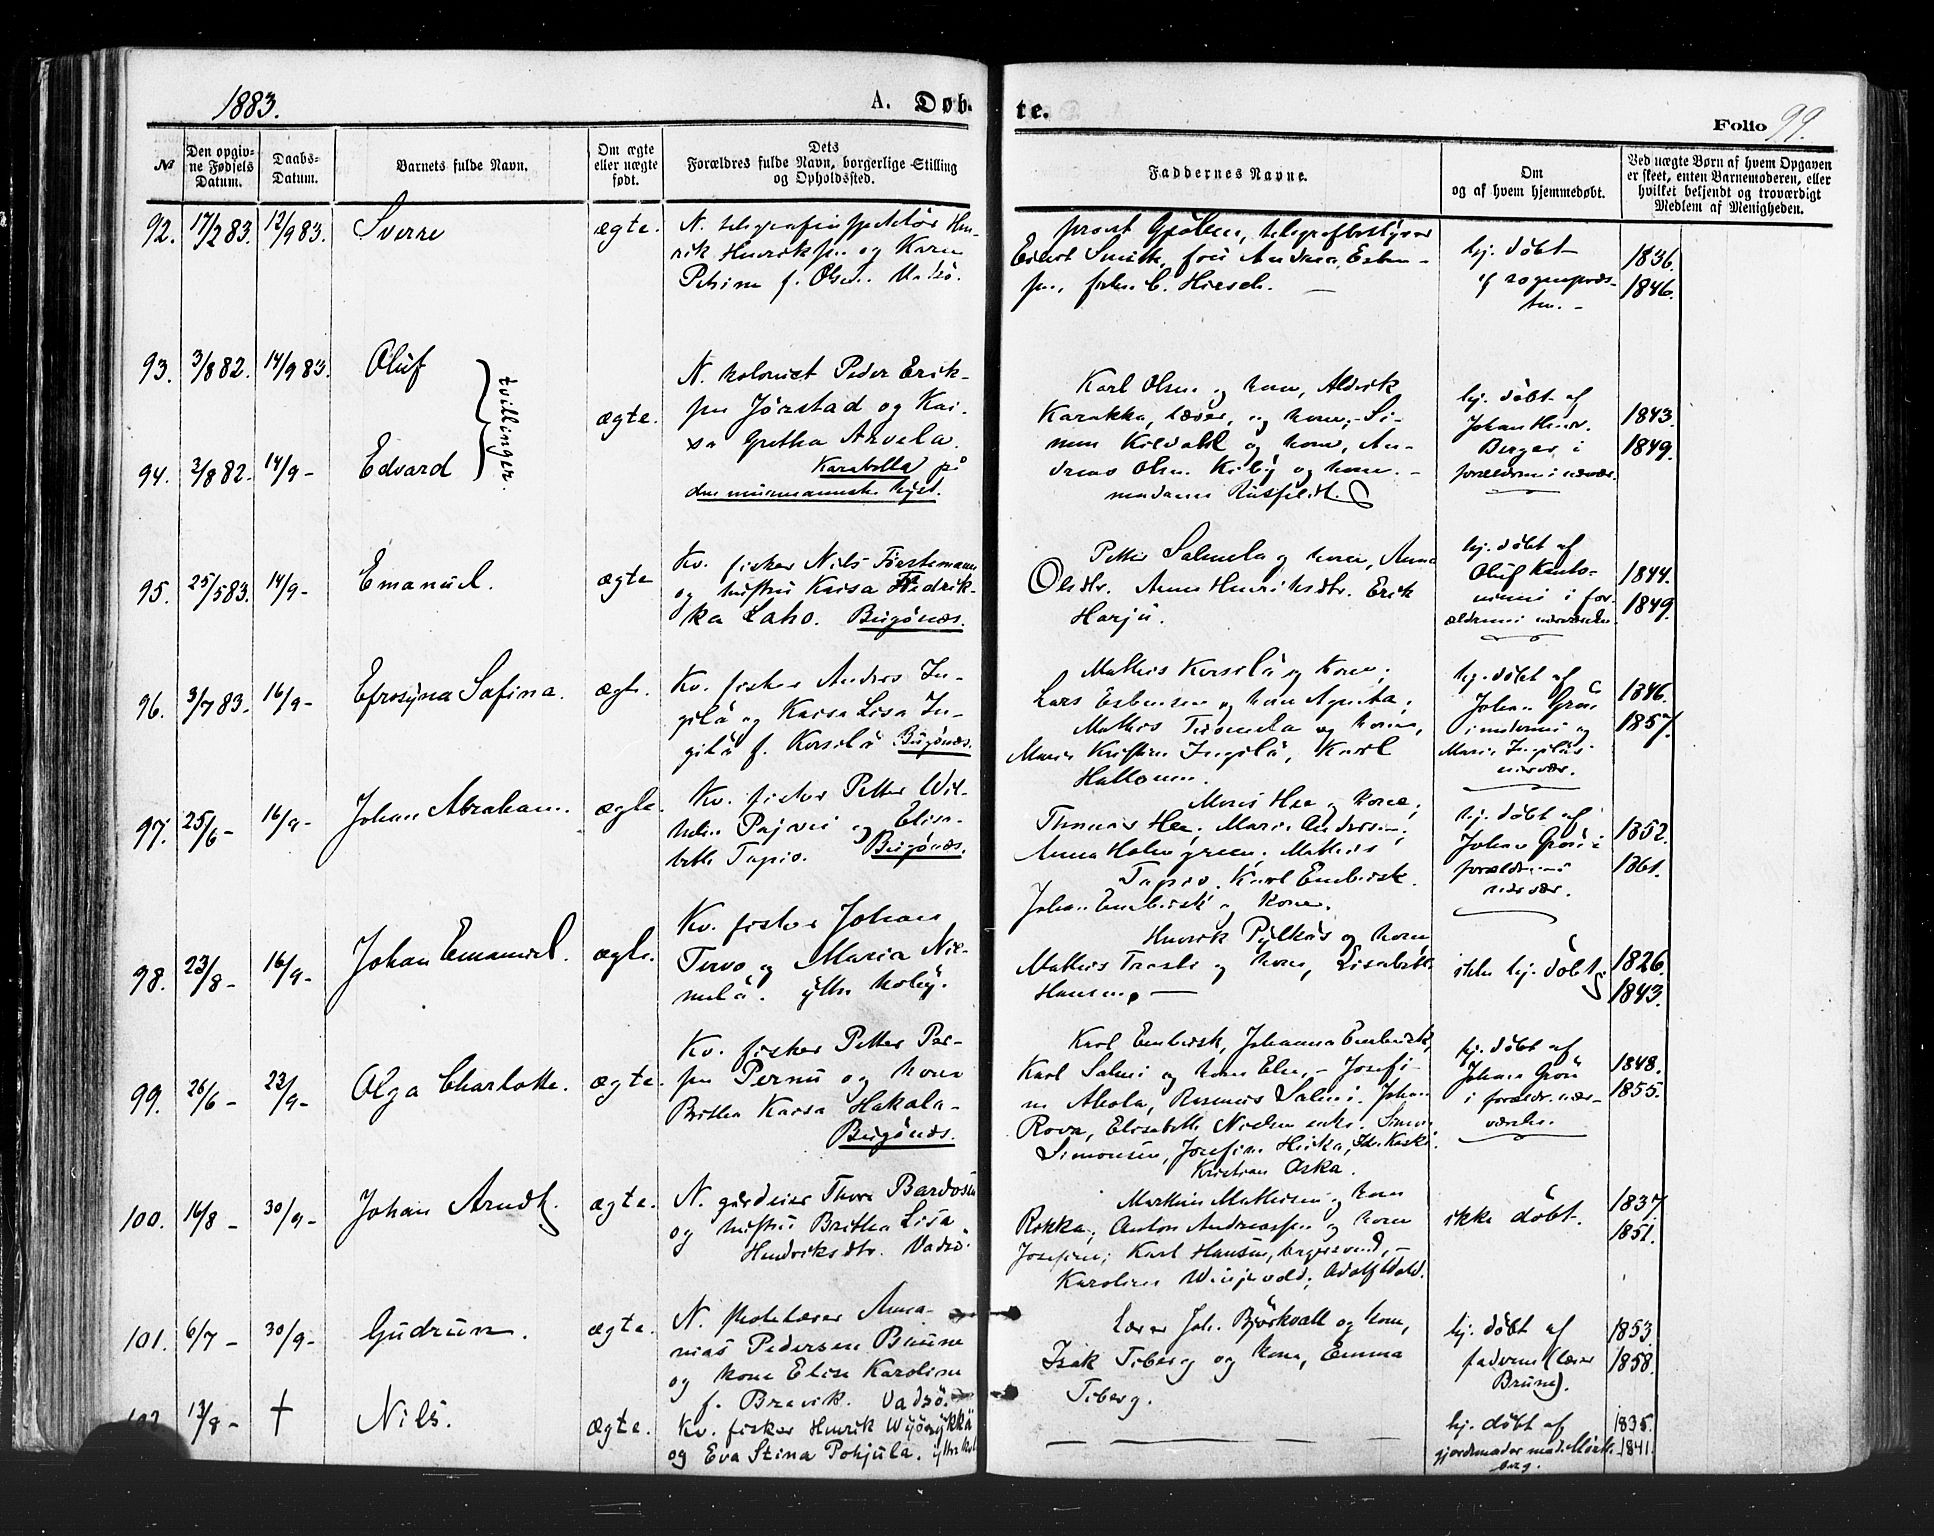 1883.
A. Døb-
te.
Folio 99.
№
Den opgiv-
ne Fødsels
Datum.
Daabs-
Datum.
Barnets fulde Navn.
Om ægte
eller uægte
født.
Dets
Forældres fulde Navn, borgerlige Stilling
og Opholdssted.
Faddernes Navne.
Om
og af hvem hjemmedøbt.
Ved uægte Børn af hvem Opgaven
er skeet, enten Barnemoderen, eller
hvilket bekjendt og troværdigt
Medlem af Menigheden.
92. 17/2 83. 12/9 83. Sverre ægte.
N. telegrafinspektør Hen-
rik Henriksen og Karen
Petrine f. Olsen. Vadsø.
provst Gjølme, telegrafbestyrer
Smith, frk. C. Hirsch. —
hj. døbt
af sognepræs-
ten. -
1836.
1846.
93. 3/8 82. 14/9 83. Oluf
tvillinger
94. 3/8 82. 14/9 - Edvard
ægte.
N. kolonist Peder Erik-
sen Jørstad og Kai-
sa Gretha Arvela.
Karabella på
den murmanske kyst.
Karl Olsen og kone, Aldrik
Karakka, lærer, og kone, Si-
mon Kilvahl og kone, An-
dreas Olsen Kiby og kone. -
madame Rusfeldt.
hj. døbt af
Johan Henr.
Berger i
forældrenes nærvær.
1843.
1849.
95. 25/5 83. 14/9 - Emanuel. ægte
Kv. fisker Nils Förstemann
og hustru Kaisa Fredrik-
ka Laho. Bugønæs.
Petter Salmela og kone, Anna
Olsdtr. Anna Henriksdtr. Erik
Harju.
hj. døbt af
Oluf
i for-
ældrenes nærværelse.
1844.
1849.
96. 3/7 83. 16/9 - Efrosyna Safina. ægte.
Kv. fisker Anders In-
gilä og Kaisa Lisa In-
gilä f. Korsilä Bugønæs.
Mathis Korsilä og kone,
Lars Esbensen og kone Agneta,
Mathis og kone,
Maria Kristine Ingilä, Karl
Halkonen.
hj. døbt af
Johan Grön
i moderens og
Maria Ingiläs
nærvær.
1846.
1857.
97. 25/6 - 16/9 - Johan Abraham. ægte.
Kv. fisker Petter Wil-
helm Pajari og Elisa-
beth Tapio. Bugønæs.
Mons Hee og kone,
Thomas Hee, Maria Andersen,
Anna Holmgreen, Mathis
Tapio, Karl Embrisk.
Johan Embrisk og kone.
hj. døbt af
Johan Grön i
forældrenes
nærvær.
1852.
1861.
98. 23/8 - 16/9 - Johan Emanuel. ægte.
Kv. fisker Johan
Tervo og Maria Nie-
melä. ytre kolby.
Henrik Pylkäs og kone
Mathis og kone, Lisabeth
Hansen. —
ikke hj. døbt.
1826.
1843.
99. 26/6 - 23/9 - Olga Charlotte. ægte.
Kv. fisker Petter Per-
sen Pernu og kone
Britha Kaisa Hakala -
Bugønæs.
Karl Embrisk, Johanna Embrisk,
Karl Salmi og kone Elen, - Josefi-
ne Ahola, Rasmus Salmi. Johan
Rova, Elisabeth Nielsen enke. Simon
Simonsen, Josefine Heika,
Kristian Aska.
hj. døbt af
Johan Grön
i forældr. nær-
værelse.
1848.
1855.
100. 16/8 - 30/9 - Johan Arndt. ægte.
N. gårdeier Thore Bardosen
og hustru Britha Lisa
Hendriksdtr. Vadsø.
Martin Mathisen og kone
Rikka, Anton Andreassen og kone
Josefine; Karl Hansen, bagersvend, -
Karoline Winjevold; Adolf Dahl.
ikke døbt.
1837.
1851.
101. 6/7 - 30/9 - Gudrun. ægte.
N. skolelærer Anna-
nias Pedersen Brune
og kone Elise Karoline
f. Brevik. Vadsø.
lærer Joh. Björkvall og kone,
Isak Tiberg og kone, Emma
Tiberg.
hj. døbt af
faderen (lærer
Brune).
1853.
1858.
102. 13/8 - † Nils. ægte.
Kv. fisker Henrik
og Eva Stina Pohjula.
— — —
hj. døbt af
gjordemoder mad.
berg.
1835.
1841.